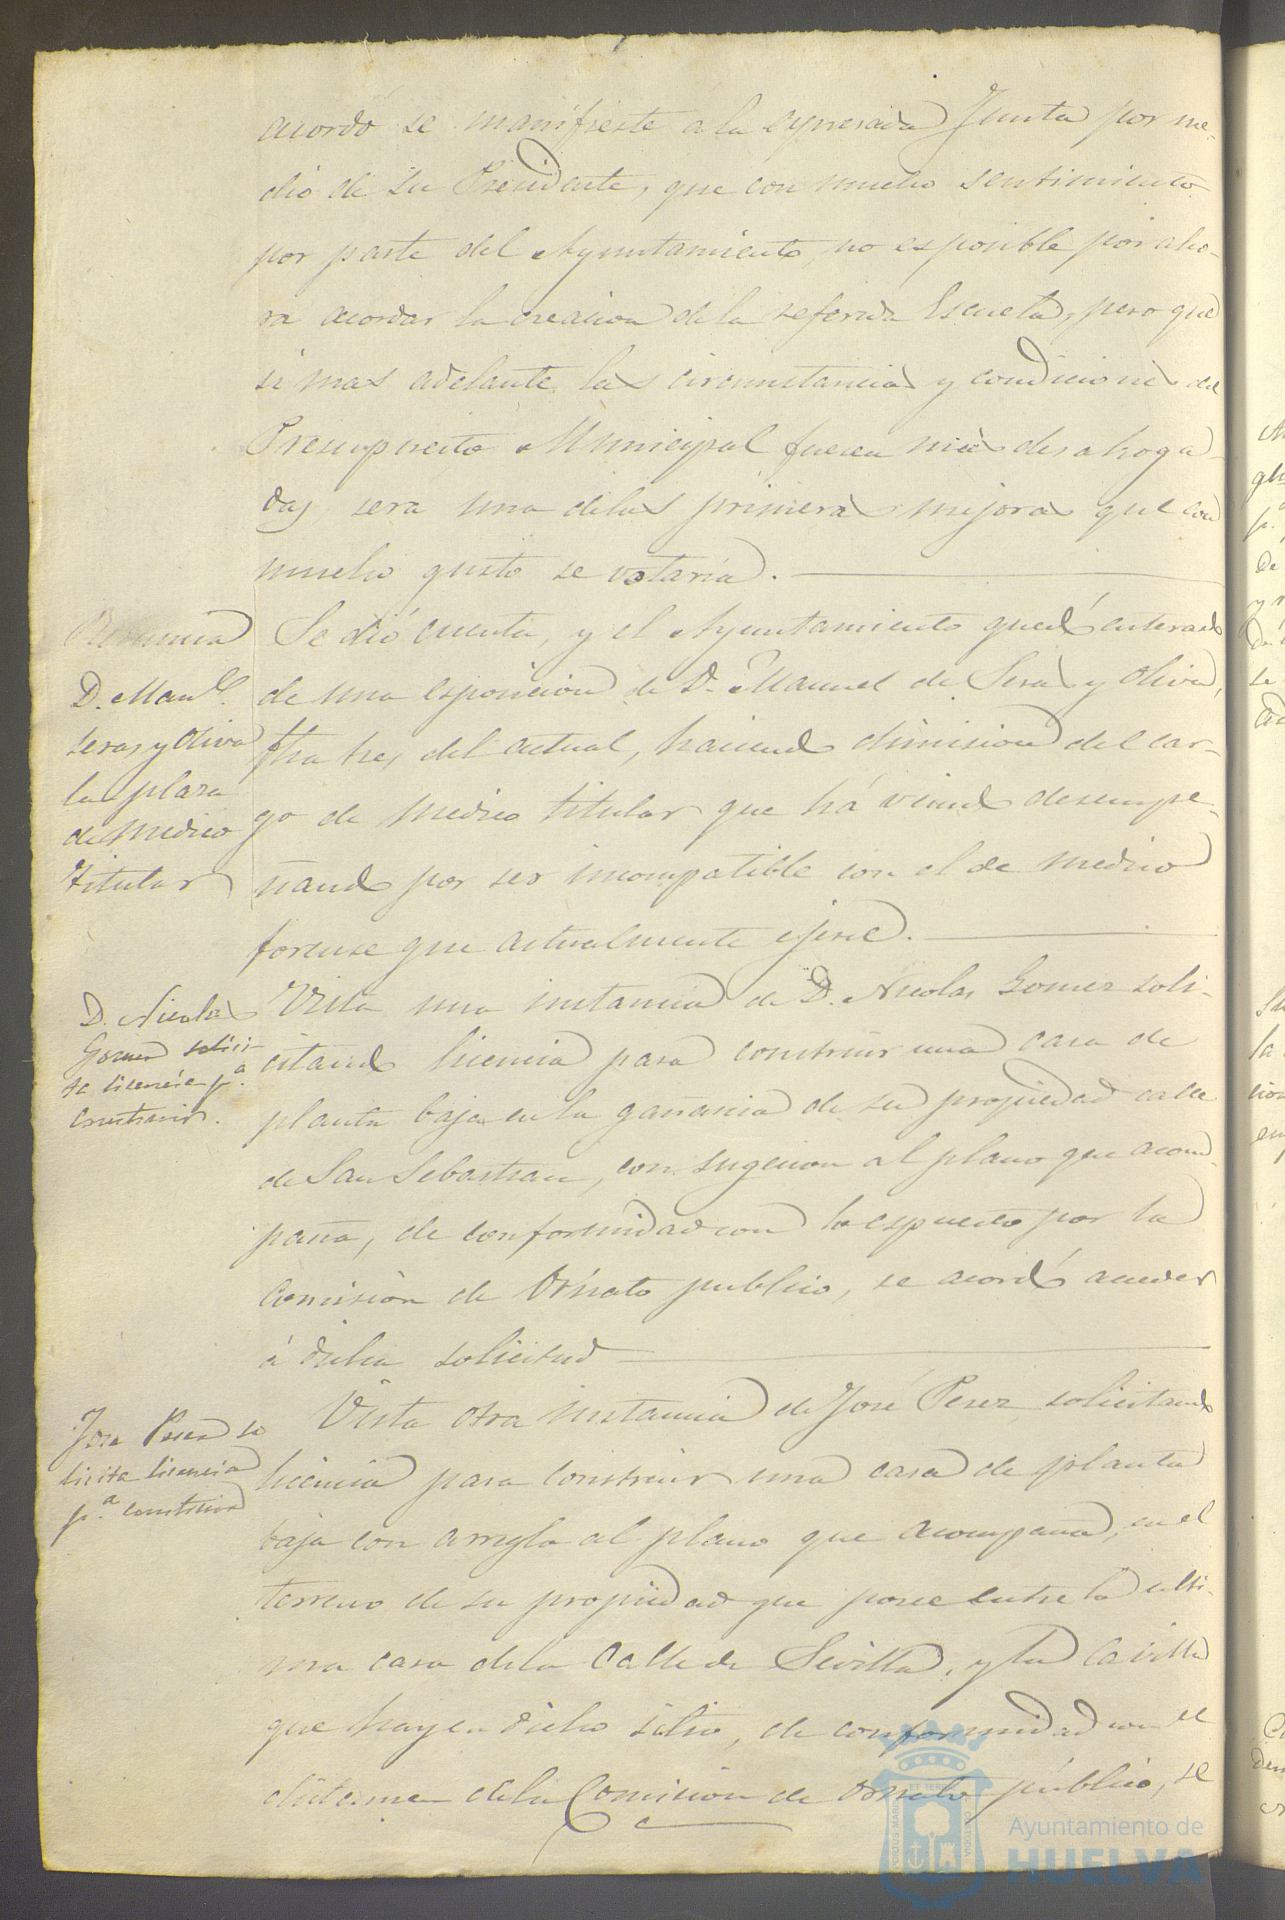 acordó se manifieste a la expresada Junta por me-
dio de su Presidente, que con mucho sentimiento
por parte del Ayuntamiento, no es posible por aho-
ra acordar la creacion de la referida Escuela, pero que
si mas adelante las circunstancias y condiciones del
Presupuesto Municipal fueren más desahoga-
das sera una de las primeras mejoras que con
mucho gusto se votaría.
Renuncia
D. Manl.
Seras y Oliva
la plaza
de medico
titular
Se dió cuenta, y el Ayuntamiento quedó enterado
de una esposicion de D. Manuel de Seras y Oliva,
fha tres del actual, haciendo dimision del car-
go de medico titular que há viendo desempe-
ñando por ser incompatible con el de medico
forense que actualmente ejerce.
D. Nicolas
Gomez solici-
ta licencia pa.
construir.
Vista una instancia de D. Nicolas Gomez soli-
citando licencia para construir una casa de
planta baja en la gañania de su propiedad calle
de San Sebastian, con sugecion al plano que acom-
paña, de conformidad con lo espuesto por la
Comision de Ornato publico, se acordó acceder
á dicha solicitud
Jose Perez so
licita licencia
pa. construir
Vista otra instancia de José Perez, solicitando
licencia para construir una casa de planta
baja con arreglo al plano que acompaña, en el
terreno de su propiedad que posee entre la ulti-
ma casa de la Calle de Sevilla, y la Casilla
que hay en dicho sitio, de conformidad con el
dictamen de la Comision de ornato público, se
Ayuntamiento de
HUELVA